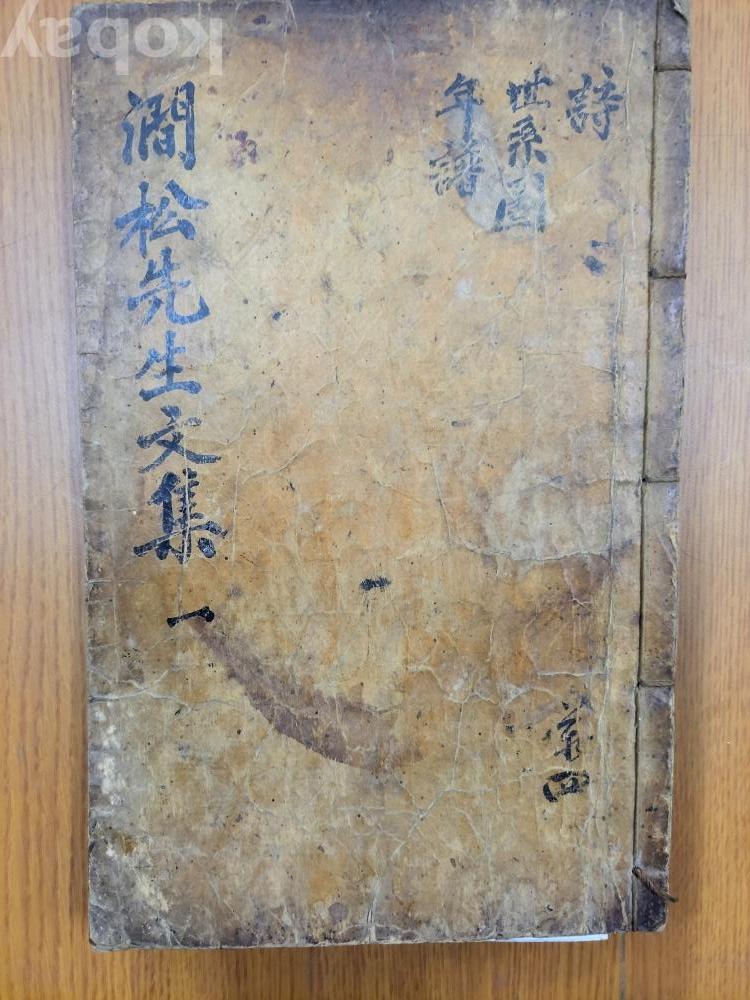 詩
世系圖
年譜
澗松先生文集 一
kobay